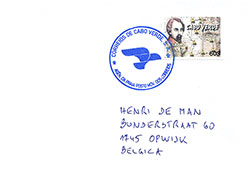 CORREIOS DE CABO VERDE
CABO VERDE
HENRI DE MAN
BUNDERSTRAAT 60
1745 OPWIJK
BELGICA